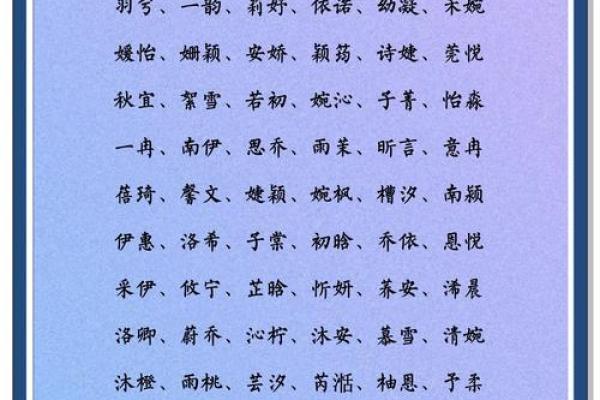 羽兮、一韵、莉好、依诺、幼凝、禾婉
媛怡、姗颖、安娇、颖筠、诗婕、莞悦
秋宜、絮雪、若初、婉沁、子菁、怡淼
一冉、南伊、思乔、雨茉、昕言、意冉
蓓琦、馨文、婕颖、婉枫、槽汐、南颍
伊惠、洛希、子棠、初晗、乔依、恩悦
采伊、攸宁、芷晗、忻妍、荞安、浠晨
洛卿、蔚乔、沁柠、沐安、慕雪、清婉
沐橙、雨桃、芸汐、芮湉、柚恩、予柔